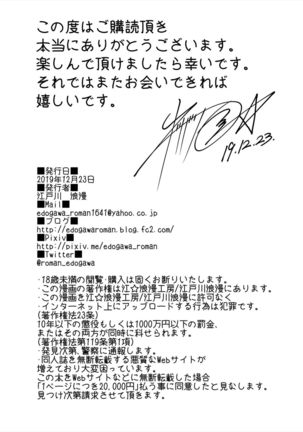 この度はご購読頂き
本当にありがとうございます。
楽しんで頂けましたら幸いです。
それではまたお会いできれば
嬉しいです。
19.12.23.
■発行日■
2019年12月23日
■発行者■
江戸川 浪漫
■Mail■
edogawa_roman1641@yahoo.co.jp
■ブログ■
http://edogawaroman.blog.fc2.com/
■Pixiv■
http://pixiv.me/edogawa_roman
■Twitter■
@roman_edogawa
・18歳未満の閲覧・購入は固くお断りいたします。
・この漫画の著作権は江☆浪漫工房/江戸川浪漫にあります。
・この漫画を江☆浪漫工房/江戸川浪漫に許可なく
インターネット上にアップロードする行為は犯罪です。
(著作権法23条)
10年以下の懲役もしくは1000万円以下の罰金、
またはその両方が同時に科せられます。
(著作権法第119条第1項)
・発見次第、警察に通報します。
・同人誌を無断転載する悪質なWebサイトが
増えており大変困っています。
この本をWebサイトなどに無断転載した場合
「1ページにつき20,000円」払う事に同意したと見なします。
見つけ次第請求させて頂きます。